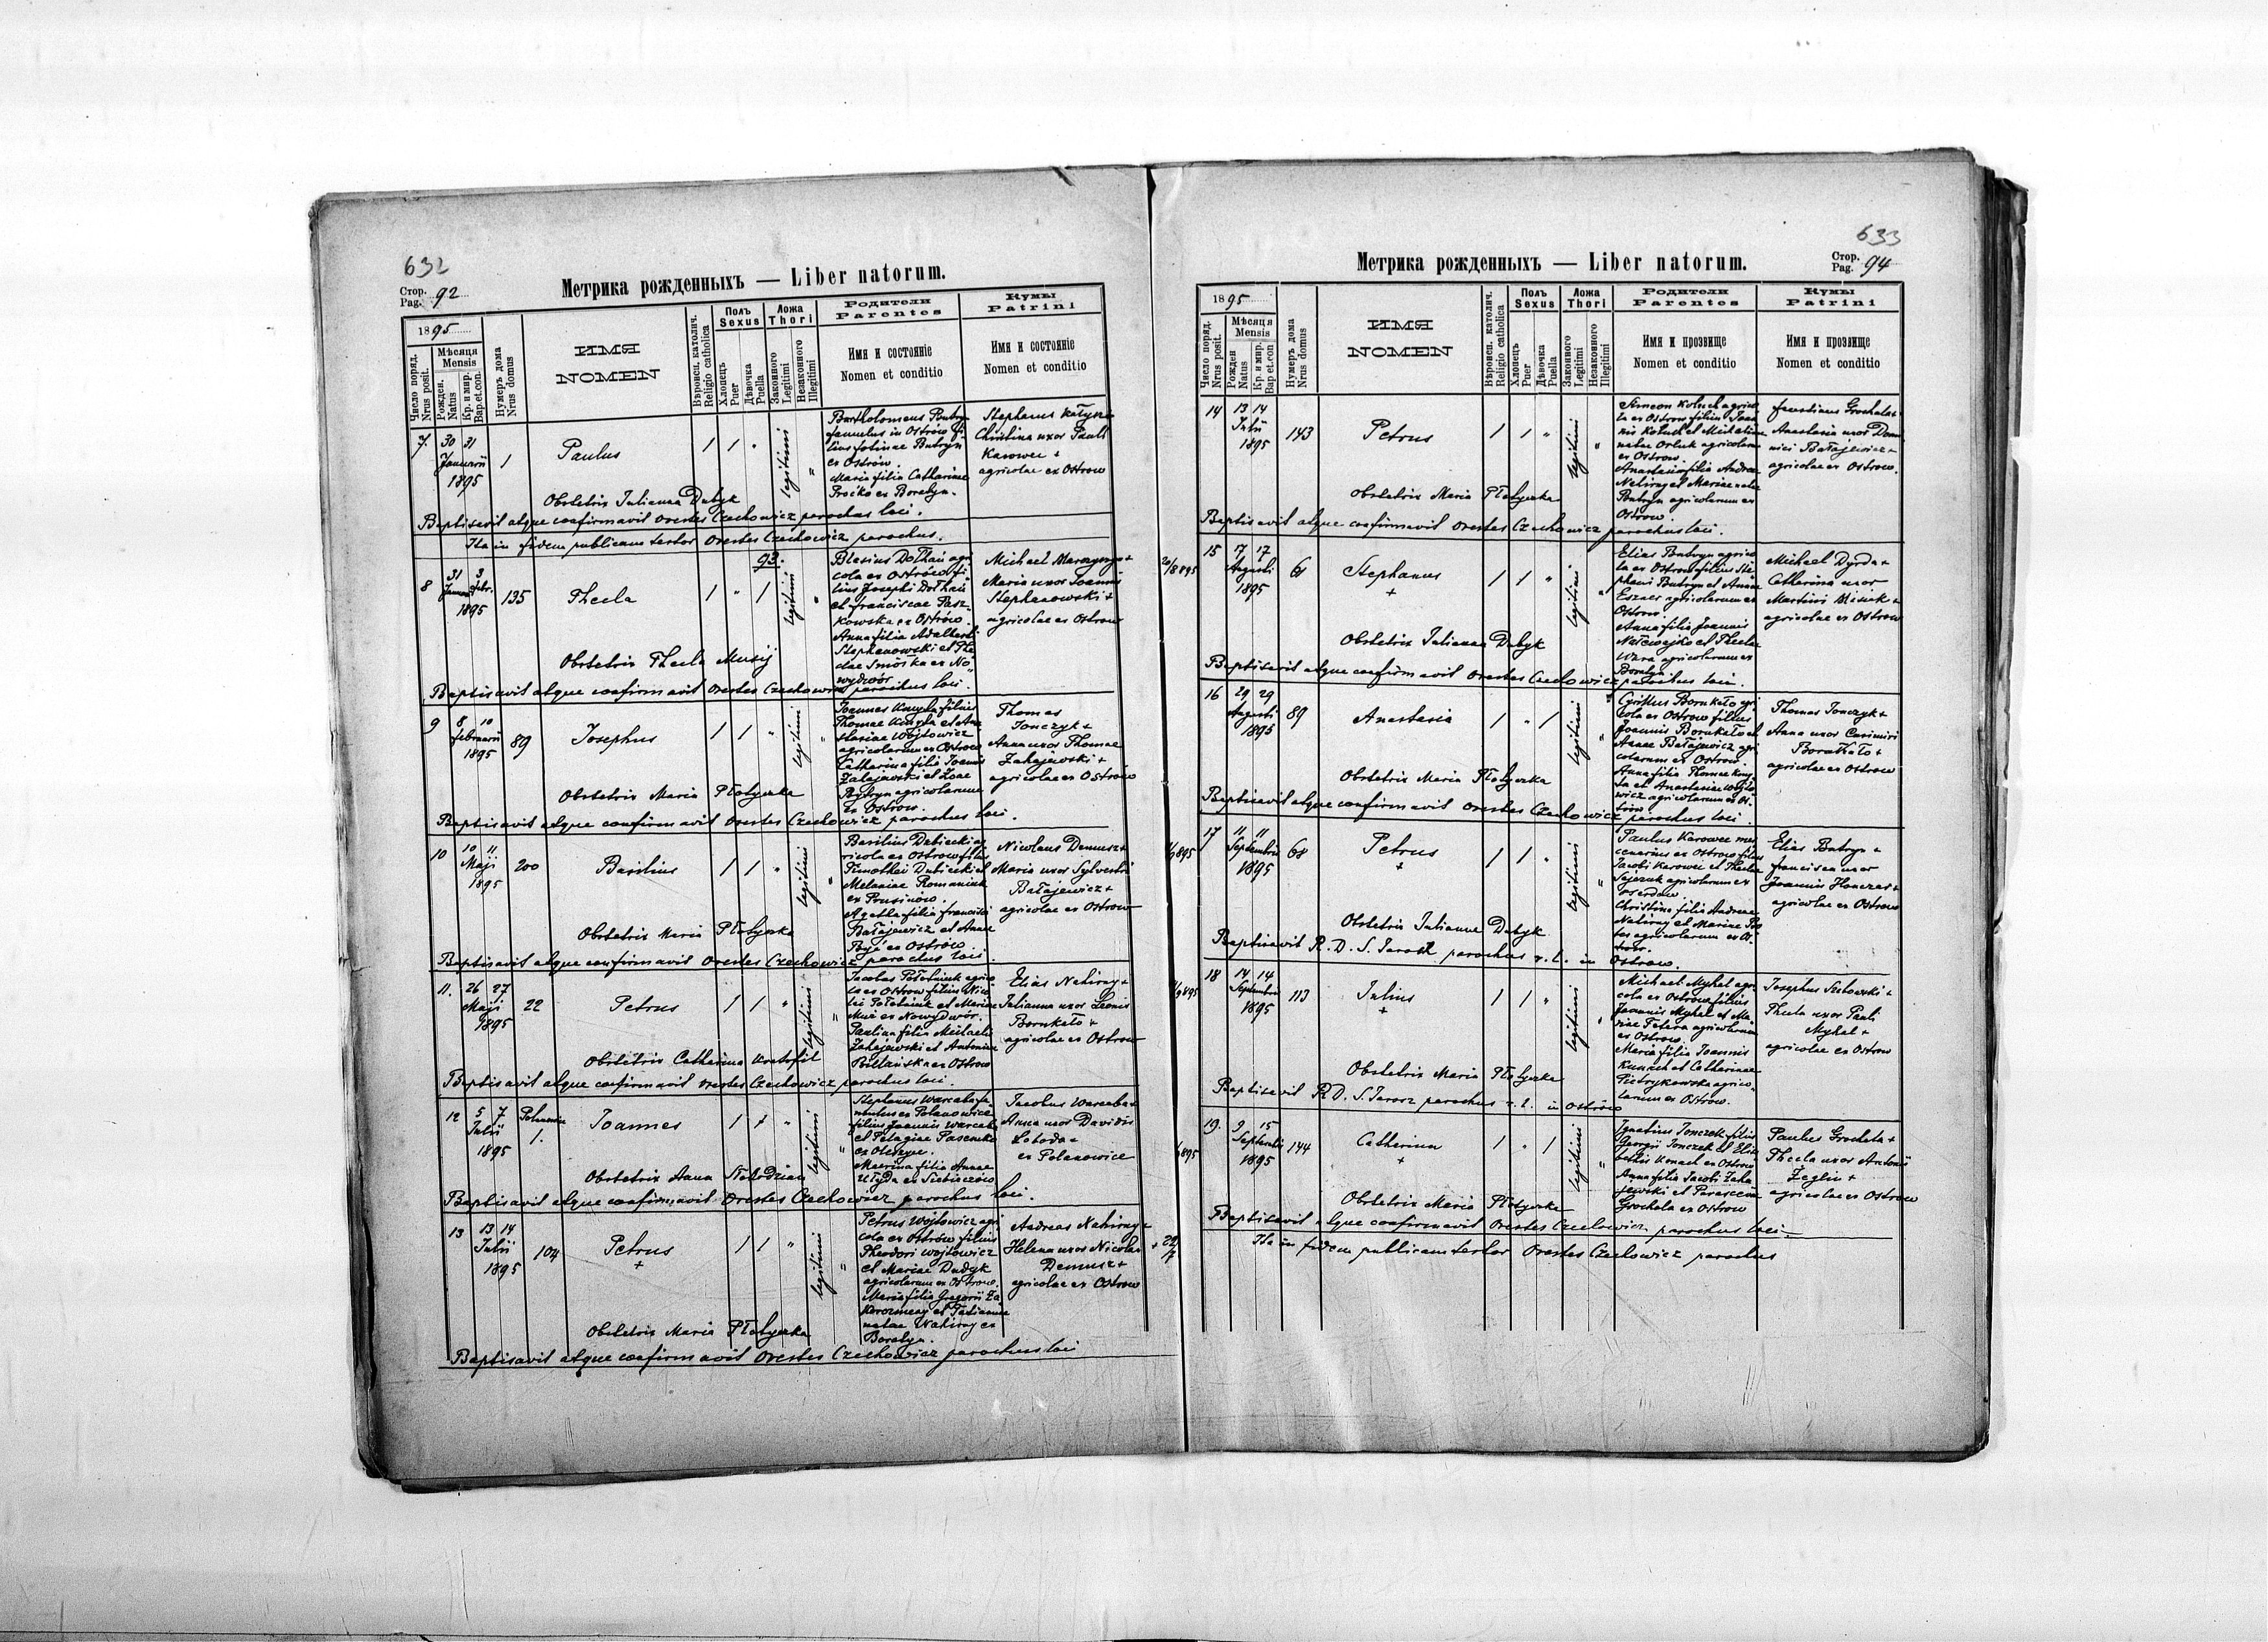 632
Стор. Pag. 92
Метрика рожденныхъ — Liber natorum.
1895
Число поряд. Nrus posit.
Мѣсяця Mensis
Рожден. Natus
Кр. и мир. Bap. et. con.
Нумеръ дома Nrus domus
ИМЯ
NOMEN
Вѣроисп. католич. Religio catholica
Полъ Sexus
Хлопець Puer
Дѣвочка Puella
Ложа Thori
Законного Legitimi
Незаконного Illegitimi
Родители Parentes
Имя и состояніе
Nomen et conditio
Кумы Patrini
Имя и состояніе
Nomen et conditio
7. 30 31 Januarii 1895
1
Paulus
1 1 "
legitimi "
Bartholomeus Butryn
famulus in Ostrów fi
lius Butryn
ex Ostrów.
Maria filia Catharinae
Proćko ex Boratyn.
Stephanus
Christina uxor Pauli
Karowec +
agricolae ex Ostrow
Obstetrix Julianna Dutyk
Baptisavit atque confirmavit Orestes Czechowicz parochus loci.
Ita in fidem publicam testor Orestes Czechowicz parochus.
93.
8 31 3 Januar. Febr. 1895
135
Thecla
1 " 1
legitimi "
Blasius Dołhań agri
cola ex Ostrów fi
lius Josephi Dołhań
et Franciscae Pasz
kowska ex Ostrów.
Anna filia Adalberti
Stephanowski et The
clae ex No
wydwór
Michael +
Maria uxor Joannis
Stephanowski +
agricolae ex Ostrow
Obstetrix Thecla Musij
Baptisavit atque confirmavit Orestes Czechowicz parochus loci.
9 8 10 Februarii 1895
89
Josephus
1 1 "
legitimi "
Joannes filius
Thomae et Ana
stasiae Wojtowicz
agricolarum ex Ostrow
Catharina filia Joannis
Zahajewski et
Butryn agricolarum
ex Ostrow.
Thomas
Jonczyk +
Anna uxor Thomae
Zahajewski +
agricolae ex Ostrów
Obstetrix Maria Płotyczka
Baptisavit atque confirmavit Orestes Czechowicz parochus loci.
10 10 11 Maji 1895
200
Basilius
1 1 "
legitimi "
Basilius Dubiecki ag
ricola ex Ostrow filius
Timothei Dubiecki et
Melaniae Romaniuk
ex Prusinow.
Agatha filia Francisci
Bałajewicz et Annae
ex Ostrów
Nicolaus Demusz +
Maria uxor Sylvestri
Bałajewicz +
agricolae ex Ostrow
Obstetrix Maria Płotycka
Baptisavit atque confirmavit Orestes Czechowicz parochus loci.
11. 26 27 Maji 1895
22
Petrus
1 1 "
legitimi "
Jacobus agrico
la ex Ostrow filius Nico
lai et Mariae
ex Nowydwór.
Paulina filia Michaelis
Zahajewski et Antoninae
ex Ostrow
Elias Nahirny +
Julianna uxor Leonis
Bornkało +
agricolae ex Ostrow
Obstetrix Catharina Kratofil
Baptisavit atque confirmavit Orestes Czechowicz parochus loci.
12 5 7 Julii 1895
1.
Joannes
1 1 "
legitimi "
Stephanus Warcaba fa
mulus ex Polanowice
filius Joannis Warcaba
et Pelagiae
Marina filia Annae
Jacobus Warcaba +
Anna uxor Davidis
Loboda +
ex Polanowice
Obstetrix Anna
Baptisavit atque confirmavit Orestes Czechowicz parochus loci.
13 13 14 Julii 1895
104
Petrus
+
1 1 "
legitimi "
Petrus Wojtowicz agri
cola ex Ostrów filius
Theodori Wojtowicz
et Mariae Dudyk
agricolarum ex Ostrow.
Maria filia Gregorii Za
et Tatiannae
natae Nahirny ex
Boratyn.
Andreas Nahirny +
Helena uxor Nicolai
Demusz +
agricolae ex Ostrow
Obstetrix Maria Płotyczka
Baptisavit atque confirmavit Orestes Czechowicz parochus loci
633
Стор. Pag. 94
Метрика рожденныхъ — Liber natorum.
1895
Число поряд. Nrus posit.
Мѣсяця Mensis
Рожден Natus
Кр. и мир. Bap et.con
Нумеръ дома Nrus domus
ИМЯ
NOMEN
Вѣроисп. католич. Religio catholica
Полъ Sexus
Хлопець Puer
Дѣвочка Puella
Ложа Thori
Законного Legitimi
Незаконного Illegitimi
Родители Parentes
Имя и прозвище
Nomen et conditio
Кумы Patrini
Имя и прозвище
Nomen et conditio
14 13 14 Julii 1895
143
Petrus
1 1 "
legitimi "
Simeon Kołuch agrico
la ex Ostrow filius Joan
nis Kołuch et Michalinae
natae agricolarum
ex Ostrow
Anastasia filia Andreae
Nahirny et Mariae natae
Butryn agricolarum ex
Ostrow
Faustinus Grochala +
Anastasia uxor Domi
nici Bałajewicz +
agricolae ex Ostrow.
Obstetrix Maria Płotyczka
Baptisavit atque confirmavit Orestes Czechowicz parochus loci.
20/8 895
15 17 17 Augusti 1895
61
Stephanus
+
1 1 "
legitimi "
Elias Butryn agrico
la ex Ostrow filius Ste
phani Butryn et Annae
agricolarum ex
Ostrow.
Anna filia Joannis
et Theclae
agricolarum ex
Boratyn
Michael Dyrda +
Catharina uxor
Martini Misiuk +
agricolae ex Ostrow
Obstetrix Julianna Dutyk
Baptisavit atque confirmavit Orestes Czechowicz parochus loci.
16 29 29 Augusti 1895
89
Anastasia
1 " 1
legitimi "
Cyrillus Bornkało agri
cola ex Ostrow filius
Joannis Bornkało et
Annae Bałajewicz agri
colarum ex Ostrow.
Anna filia Thomae
et Anastasiae Wojto
wicz agricolarum ex Os
trow
Thomas Jonczyk +
Anna uxor Casimiri
Bornkało +
agricolae ex Ostrow
Obstetrix Maria Płotyczka
Baptisavit atque confirmavit Orestes Czechowicz parochus loci.
17 11 11 Septembris 1895
68
Petrus
+
1 1 "
legitimi "
Paulus Karowec mer
cenarius ex Ostrow filius
Jacobi Karowec et Theclae
agricolarum ex
Christina filia Andreae
Nahirny et Mariae
agricolarum ex Os
trow.
Elias Butryn +
Francisca uxor
Joannis Honczar +
agricolae ex Ostrow
Obstetrix Julianna Dutyk
Baptisavit R. D. S. Jarosz parochus r. l. in Ostrow.
18 14 14 Septembris 1895
113
Julius
+
1 1 "
legitimi "
Michael Myhal agri
cola ex Ostrow filius
Joannis Myhal et Ma
riae Fetera agricolarum
ex Ostrow.
Maria filia Joannis
et Catharinae
Pietrykowska agrico
larum ex Ostrow.
Josephus +
Thecla uxor Pauli
Myhal +
agricolae ex Ostrow
Obstetrix Maria Płotyczka
Baptisavit R. D. S. Jarosz parochus r. l. in Ostrów
19. 9 15 Septembris 1895
144
Catharina
+
1 " 1
legitimi "
Ignatius Jonczek filius
Georgii Jonczek et Elisa
bethis ex Ostrow
Anna filia Jacobi Zaha
jewski et Parascevia
Grochala ex Ostrow
Paulus Grochala +
Thecla uxor Antonii
Żeglin +
agricolae ex Ostrow
Obstetrix Maria Płotyczka
Baptisavit atque confirmavit Orestes Czechowicz parochus loci.
Ita in fidem publicam testor Orestes Czechowicz parochus